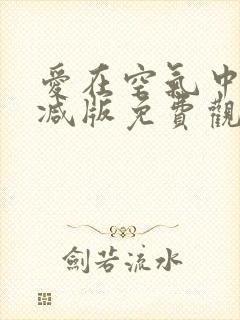 愛在空氣中
减版免費觀
劍若流水